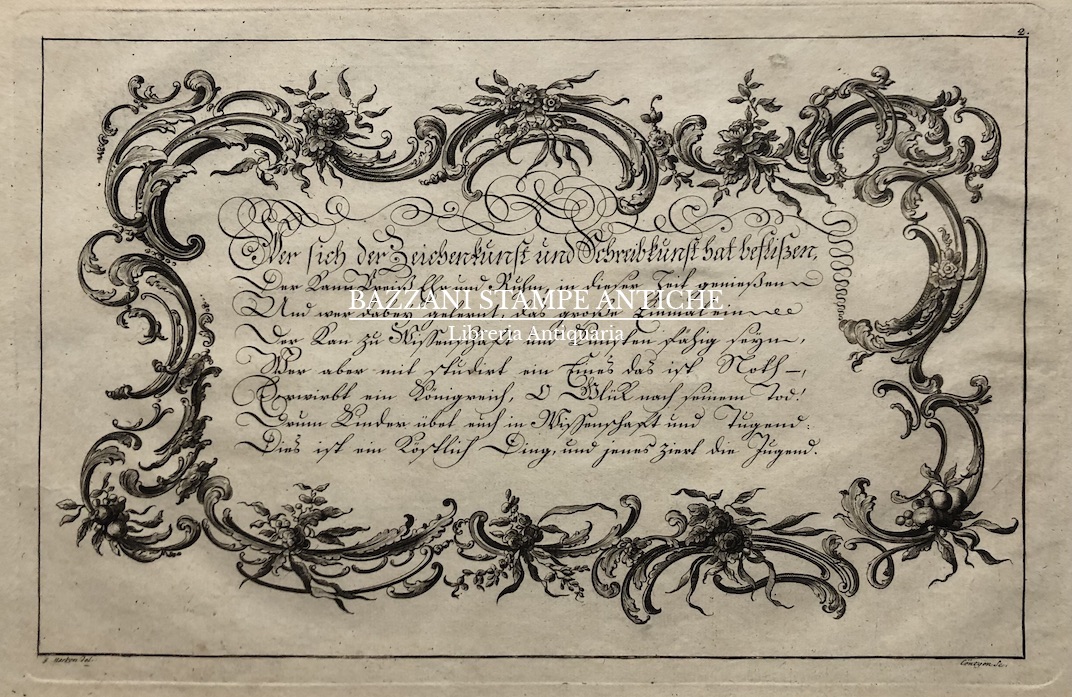 2.
Wer sich der Zeichenkunst und Schreibkunst hat beflißen,
Der kan Preiß Ehr und Ruhm in dieser Zeit genießen
BAZZANI STAMPE ANTICHE
Und wer dabey gelernt, das große Einmal ein
Libreria Antiquaria
Der kan zu Wissenschaft und Künsten fähig seyn,
Wer aber mit studirt ein Eines das ist Noth –,
Erwirbt ein Königreich, O Glük nach seinem Tod!
Drum Kinder übet euch in Wissenschaft und Tugend:
Dies ist ein Köstlich Ding, und jenes ziert die Jugend.
del.
sc.